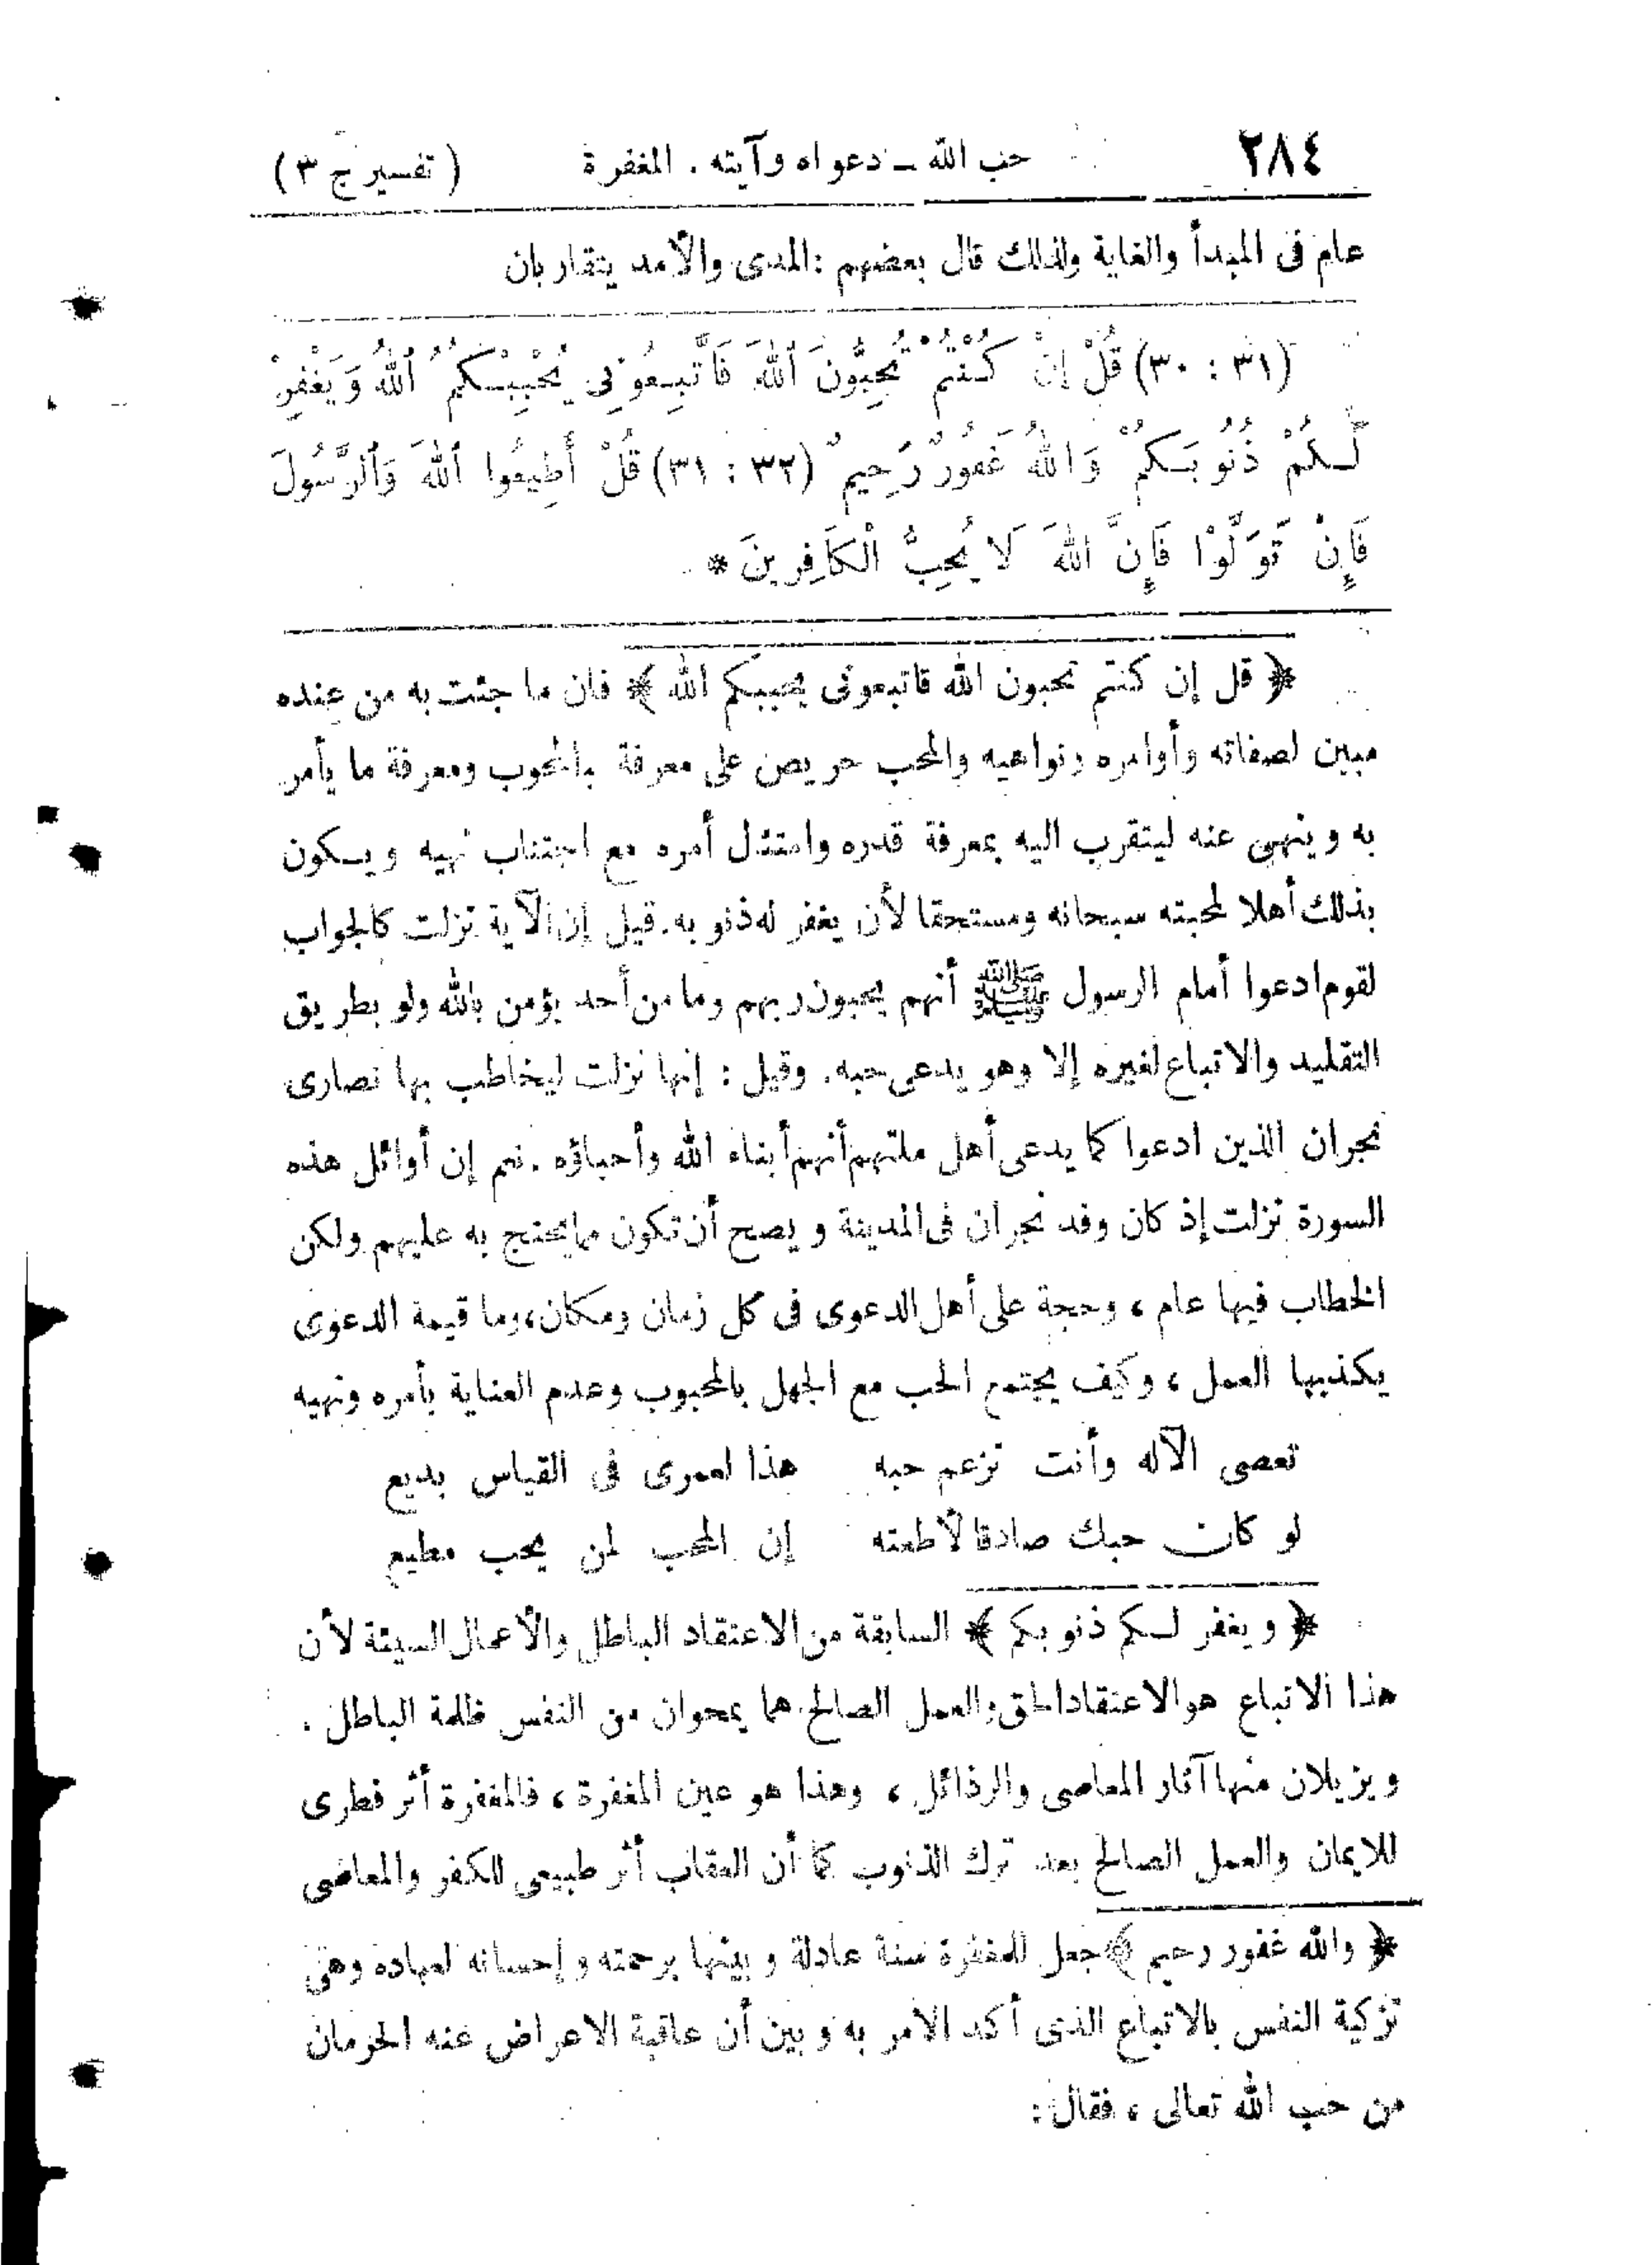 ٢٨٤ حب الله ـ دعواه وآيته . المغفرة ( تفسير ج ٣ )
عام فى المبدأ والغاية ولذلك قال بعضهم : المدى والأمد يتقاربان
(٣١ : ٣٠) قُلْ إِنْ كُنْتُمْ تُحِبُّونَ ٱللهَ فَاتَّبِعُونِى يُحْبِبْكُمُ ٱللهُ وَيَغْفِرْ
لَكُمْ ذُنُوبَكُمْ وَاللهُ غَفُورٌ رَحِيمٌ (٣٢ : ٣١) قُلْ أَطِيعُوا ٱللهَ وَٱلرَّسُولَ
فَإِنْ تَوَلَّوْا فَإِنَّ اللهَ لَا يُحِبُّ الْكَافِرِينَ *
﴿ قل إن كنتم تحبون الله فاتبعونى يحببكم الله ﴾ فان ما جئت به من عنده
مبين لصفاته وأوامره ونواهيه والمحب حريص على معرفة بالمحبوب ومعرفة ما يأمر
به وينهى عنه ليتقرب اليه بمعرفة قدره وامتثال أمره مع اجتناب نهيه ويكون
بذلك أهلا لمحبته سبحانه ومستحقا لأن يغفر له ذنوبه. قيل إن الآية نزلت كالجواب
لقوم ادعوا أمام الرسول ﷺ أنهم يحبون ربهم وما من أحد يؤمن بالله ولو بطريق
التقليد والاتباع لغيره إلا وهو يدعى حبه. وقيل : إنها نزلت ليخاطب بها نصارى
نجران الذين ادعوا كما يدعى أهل ملتهم أنهم أبناء الله وأحباؤه . نعم إن أوائل هذه
السورة نزلت إذ كان وفد نجران فى المدينة ويصح أن تكون مما يحتج به عليهم ولكن
الخطاب فيها عام ، وحجة على أهل الدعوى فى كل زمان ومكان، وما قيمة الدعوى
يكذبها العمل ، وكيف يجتمع الحب مع الجهل بالمحبوب وعدم العناية بأمره ونهيه
تعصى الآله وأنت تزعم حبه هذا لعمرى فى القياس بديع
لو كان حبك صادقا لأطعته إن المحب لمن يحب مطيع
﴿ ويغفر لكم ذنوبكم ﴾ السابقة من الاعتقاد الباطل والأعمال السيئة لأن
هذا الاتباع هو الاعتقاد الحق والعمل الصالح هما يمحوان من النفس ظلمة الباطل .
ويزيلان منها آثار المعاصى والرذائل ، وهذا هو عين المغفرة ، فالمغفرة أثر فطرى
للايمان والعمل الصالح بعد ترك الذنوب كما أن العقاب أثر طبيعى للكفر والمعاصى
﴿ والله غفور رحيم ﴾ جعل للمغفرة سنة عادلة وبينها برحمته وإحسانه لعباده وهى
تزكية النفس بالاتباع الذى أكد الأمر به وبين أن عاقبة الاعراض عنه الحرمان
من حب الله تعالى ، فقال :